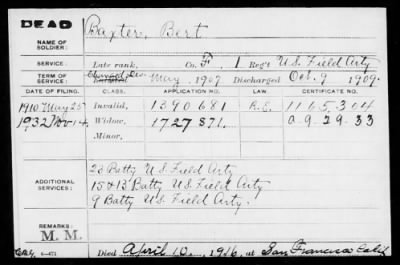 DEAD
NAME OF SOLDIER: Baxter, Bert
SERVICE: Late rank, Co. F, 1 Reg't U.S. Field Arty
TERM OF SERVICE: Enlisted May 1907 Discharged Oct. 9 1909.
DATE OF FILING. CLASS. APPLICATION NO. LAW. CERTIFICATE NO.
1910 May 25 Invalid, 1390681 1165304
1932 Nov 14 Widow, 1727871 A-9-29-33
Minor,
ADDITIONAL SERVICES:
23 Batty U.S. Field Arty
15 & 13 Batty U.S. Field Arty
9 Batty U.S. Field Arty.
REMARKS:
M. M.
Died April 10, 1916, at San Francisco Calif